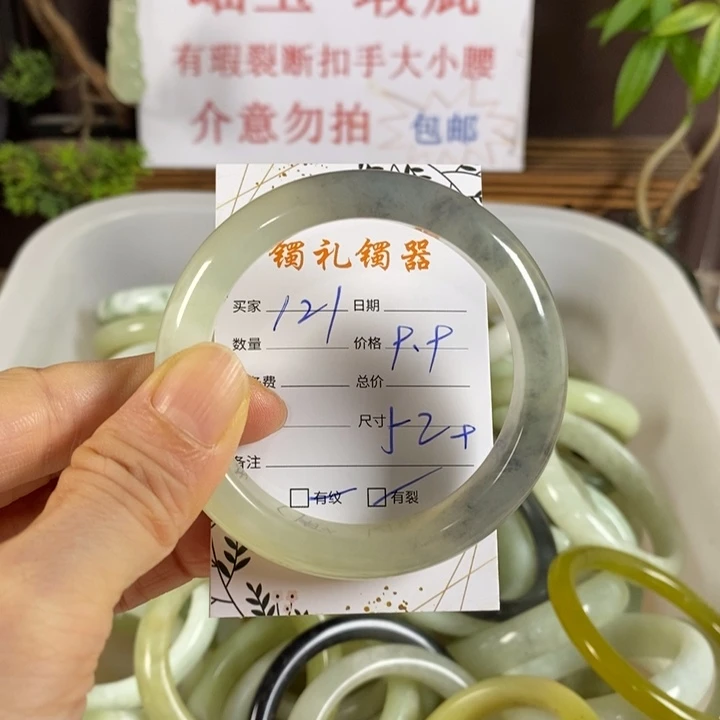 岫玉 瑕疵
有瑕裂断扣手大小腰
介意勿拍 包邮
镯礼镯器
买家 121 日期
数量 价格 9.9
费 总价
尺寸 52+
备注
□有纹 □有裂